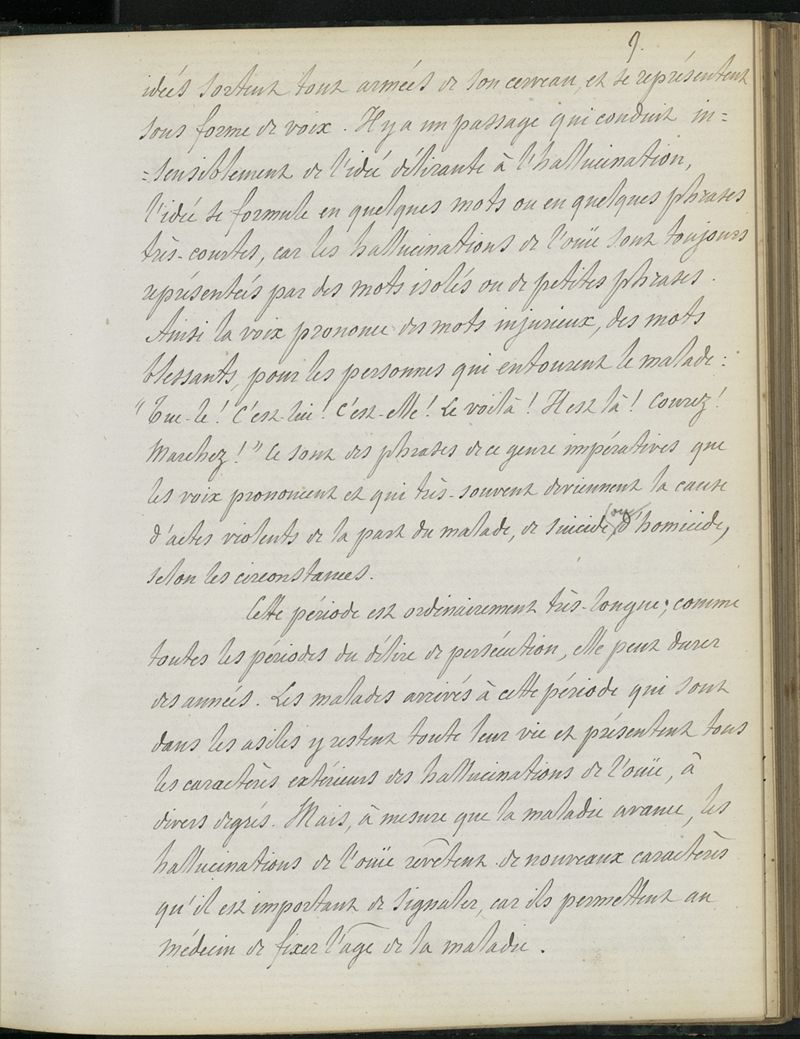 9.
idées sortent tout armées de son cerveau, et se représentent
sous forme de voix. Il y a un passage qui conduit in=
=sensiblement de l'idée délirante à l'hallucination,
l'idée se formule en quelques mots ou en quelques phrases
très-courtes, car les hallucinations de l'ouïe sont toujours
représentées par des mots isolés ou de petites phrases.
Ainsi la voix prononce des mots injurieux, des mots
blessants, pour les personnes qui entourent le malade :
"Tue-le ! C'est-lui ! C'est-elle ! Le voilà ! Il est là ! Courez !
Marchez !" Ce sont des phrases de ce genre impératives que
les voix prononcent et qui très-souvent deviennent la cause
d'actes violents de la part du malade, de suicide, ou d'homicide,
selon les circonstances.
Cette période est ordinairement très-longue ; comme
toutes les périodes du délire de persécution, elle peut durer
des années. Les malades arrivés à cette période qui sont
dans les asiles y restent toute leur vie et présentent tous
les caractères extérieurs des hallucinations de l'ouïe, à
divers degrés. Mais, à mesure que la maladie avance, les
hallucinations de l'ouïe revêtent de nouveaux caractères
qu'il est important de signaler, car ils permettent au
médecin de fixer l'âge de la maladie.